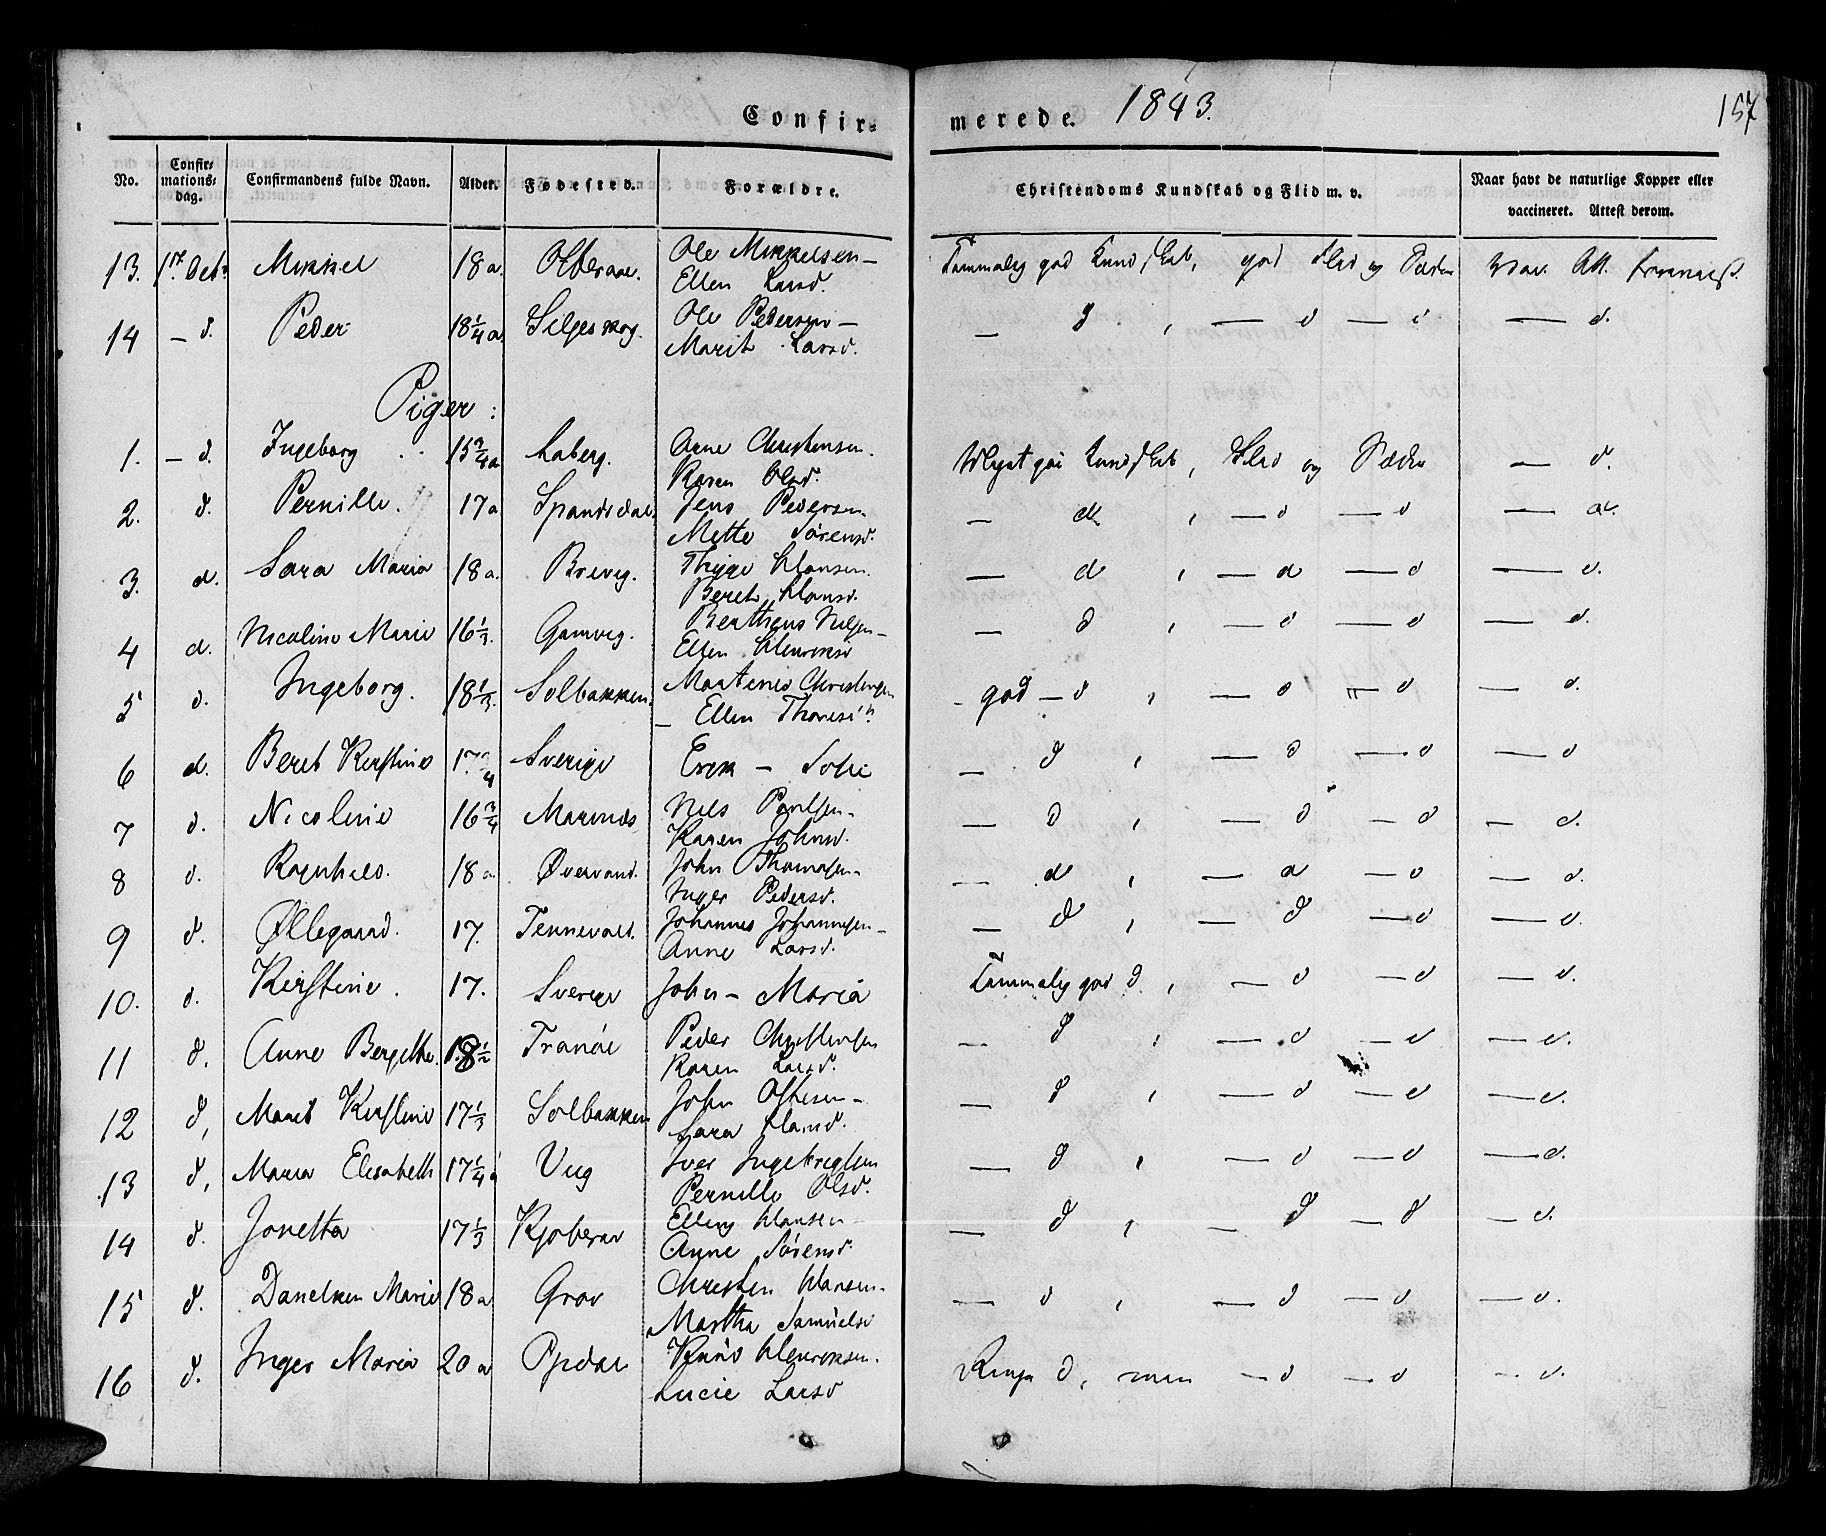 Confir- merede. 1843. 157
No. Confir-mations-dag. Confirmandens fulde Navn. Alder. Fødested. Forældre. Christendoms Kundskab og Flid m. v. Naar havt de naturlige Kopper eller vaccineret. Attest derom.
13. 1ste Octr Mikkel 18 a. Ole Mikkelsen —
Ellen Larsd. Tammelig god Kundskab, god Flid og Sæder Vac. Att.
14 — d. Peder 18 1/4 a Seljeskog. Ole Pedersen —
Marit Larsd. — d , — d — d — d.
Piger:
1. — d. Ingeborg 15 3/4 a Aaberg. Arne Christensen.
Karen Olsd. Kundskab, Flid og Sæder — d.
2. d. Pernille. 17 a Spandsdal. Jens Pedersen.
Mette Sørensd. — d. , — d — d — d.
3. d. Sara Maria 18 a. Brevig. Hansen.
Beret Hansd. — d , — d — d — d.
4 d. Nicoline Marie 16 1/3. Gamvig. Bertheus Nilsen —
Ellen Henriksd — d , — d — d — d.
5 d. Ingeborg. 18 1/3. Solbakken. Martinus Christensen
— Ellen — god — d , — d — d — d.
6 d. Beret Kirstine 17 /4 Sverige Erik — Sofie — d , — d — d — d
7 d. Nicoline 16 3/4 Marienæs Nils Paulsen —
Karen Johnsd. — d , — d — d — d.
8 d. Ragnhild. 18 a. Øvervand. John Thomasen —
Inger Pedersd. — d , — d — d — d.
9 d. Øllegaard. 17. Tennevold. Johannes Johannesen —
Anne Larsd. — d , — d — d — d.
10. d. Kirstine. 17. Sverige John — Maria Tammelig god d. , — d — d — d.
11 d. Anne Bergithe. 18 1/2 Tranøe Peder Christensen
Karen Larsd. — d , — d — d — d.
12 d, Marit Kirstine 17 1/3 Solbakken John Oftesen —
Sara Hansd. — d , — d — d — d.
13 d, Maria Elisabeth 17 1/4 a Vig Iver Ingebrigtsen
Pernille Olsd. — d , — d — d — d.
14 d. Jonetta 17 1/3 Elling Hansen —
Anne Sørensd. — d , — d — d — d.
15 d. Danelken Marie 18 a Grov Christen Hansen.
Martha Samuelsd — d , — d — d — d.
16 d. Inger Maria 20 a Opdal Knud Henriksen.
Lucie Larsd Ringe d, men — d — d — d.